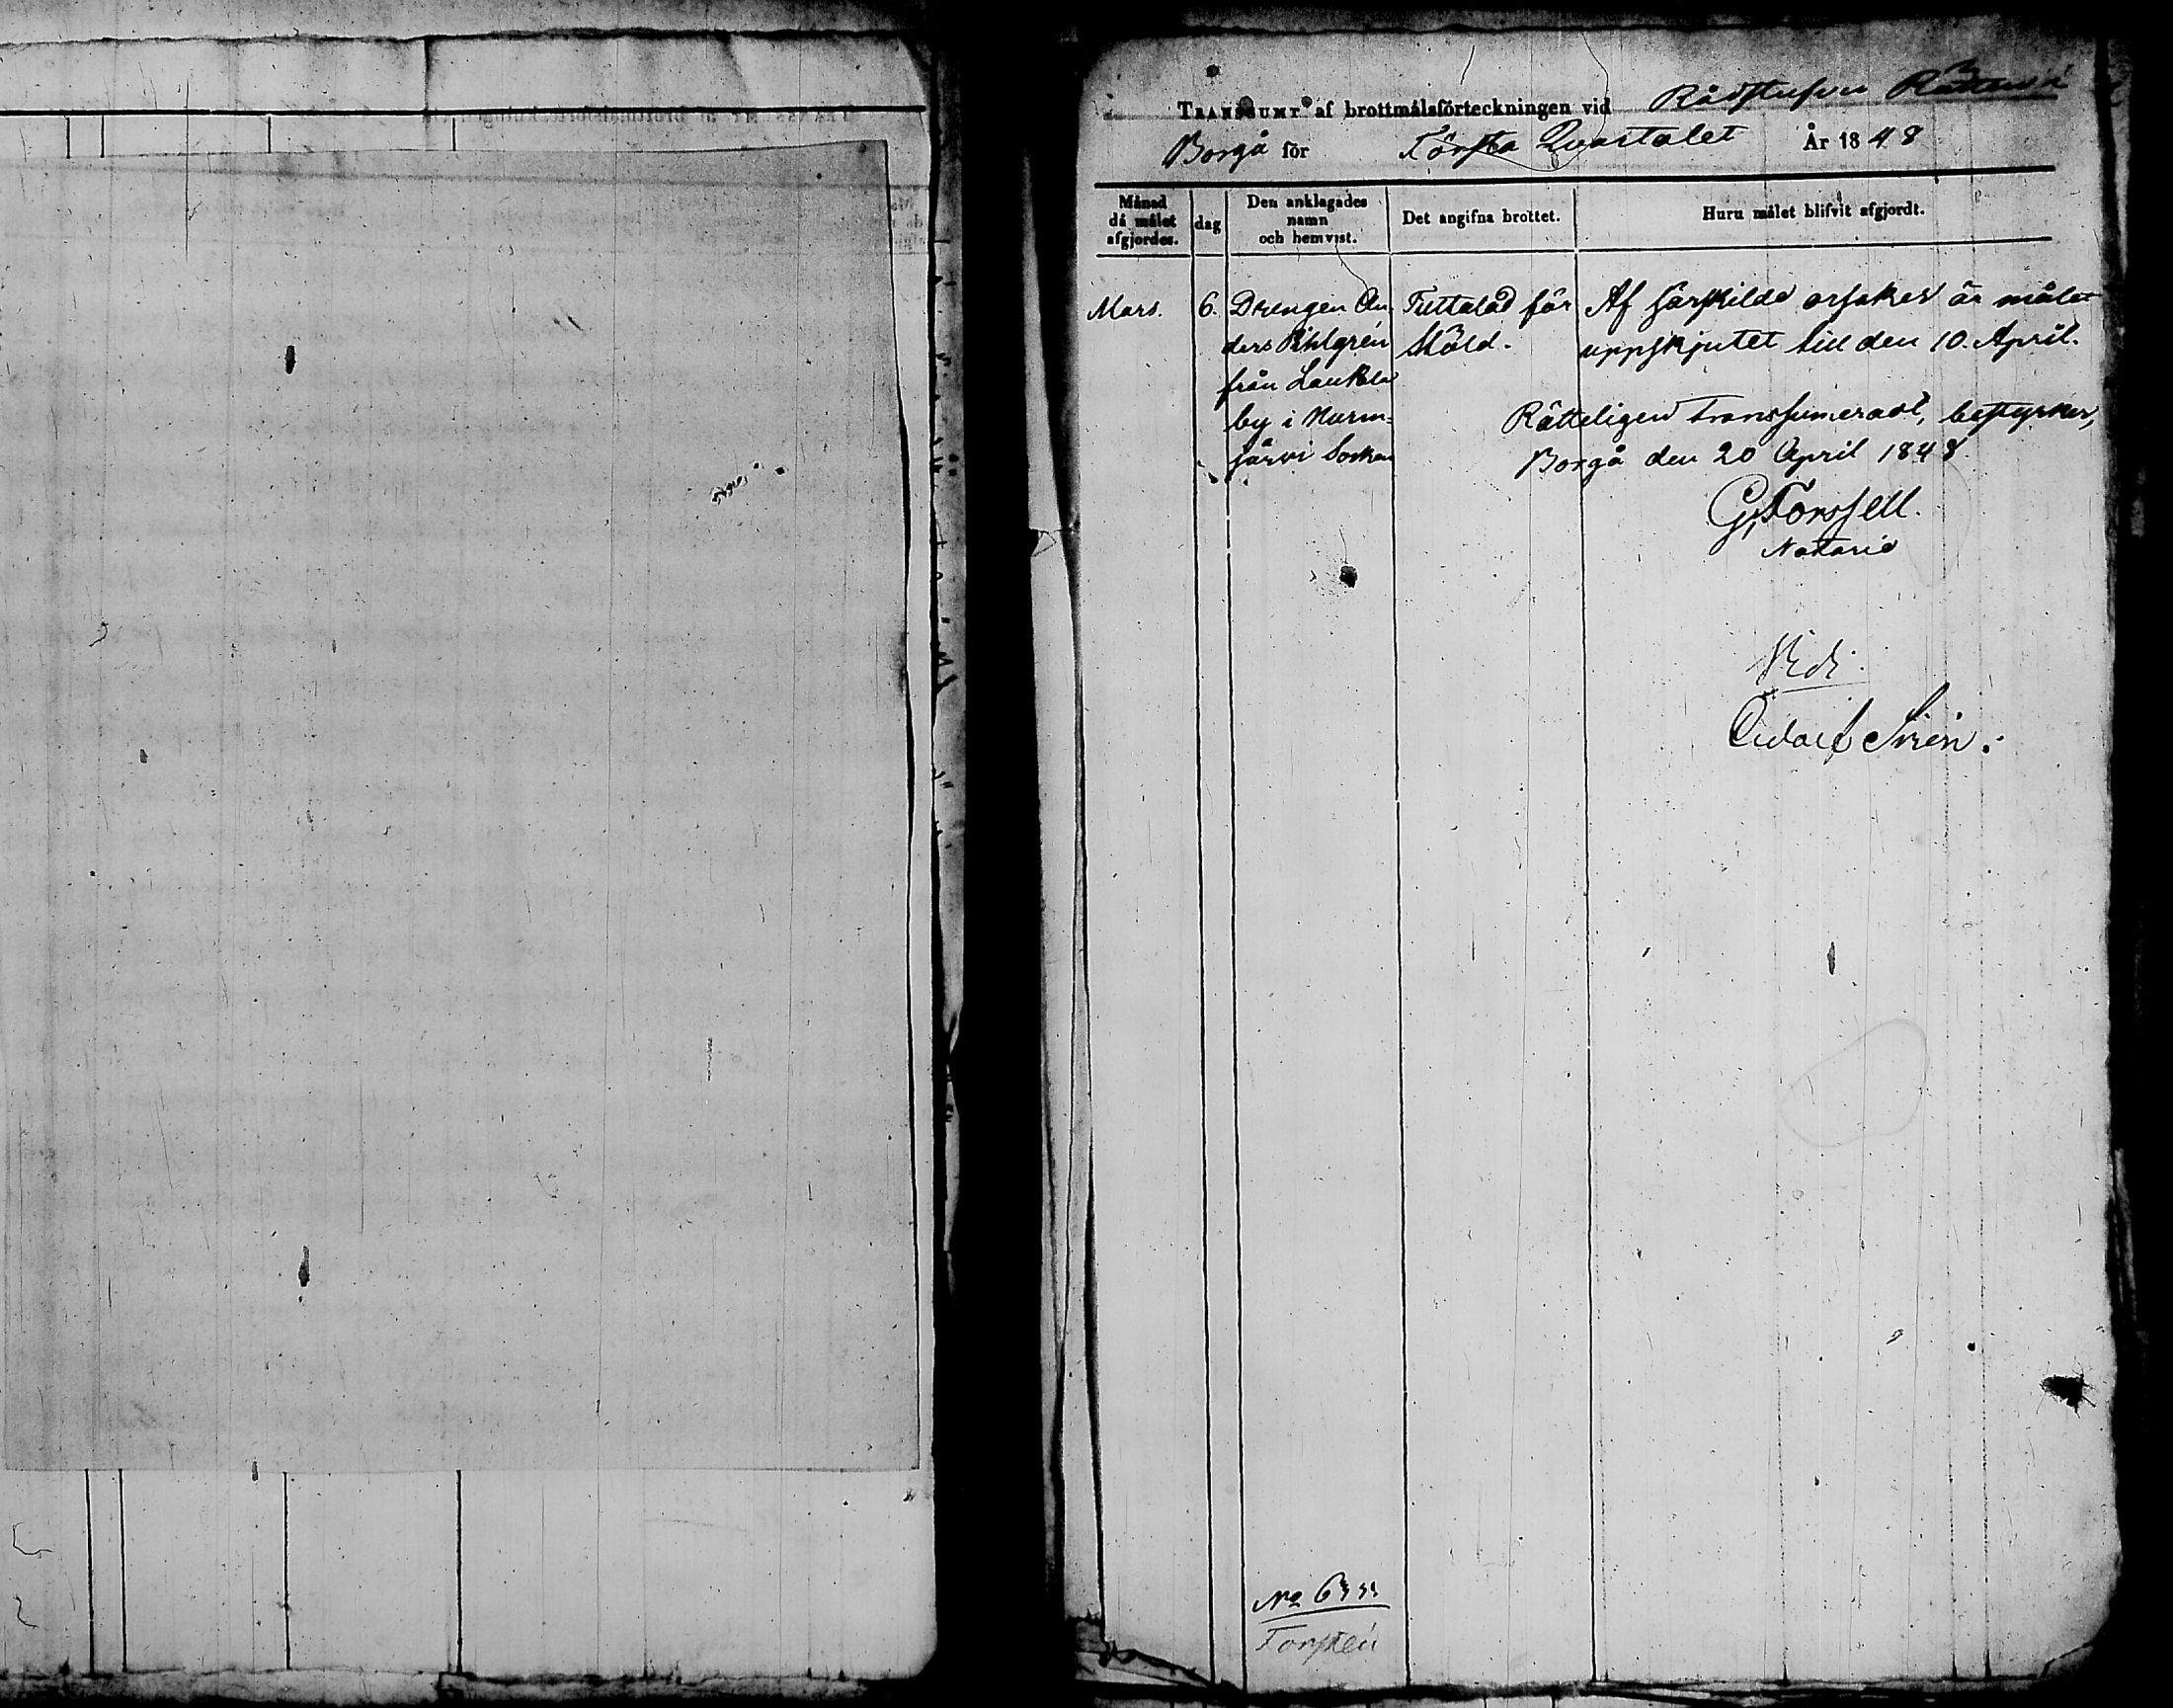 TRANSSUMT af brottmålsförteckningen vid Rådstufvu Rätten i
Borgå för Första Quartalet År 1848
Månad då målet afgjordes.
dag
Den anklagades namn och hemvist.
Det angifna brottet.
Huru målet blifvit afgjordt.
Mars.
6.
Drengen An-
ders Pihlgrén
från Laukela
by i Nurm-
järvi Socken
Tilltalad för
Stöld.
Af särskilde orsaker är målet
uppskjutet till den 10. April.
Rätteligen transsumeradt, bestyrker,
Borgå den 20 April 1848.
G. Forssell.
Notarie
Vidi.
Sirén.
No